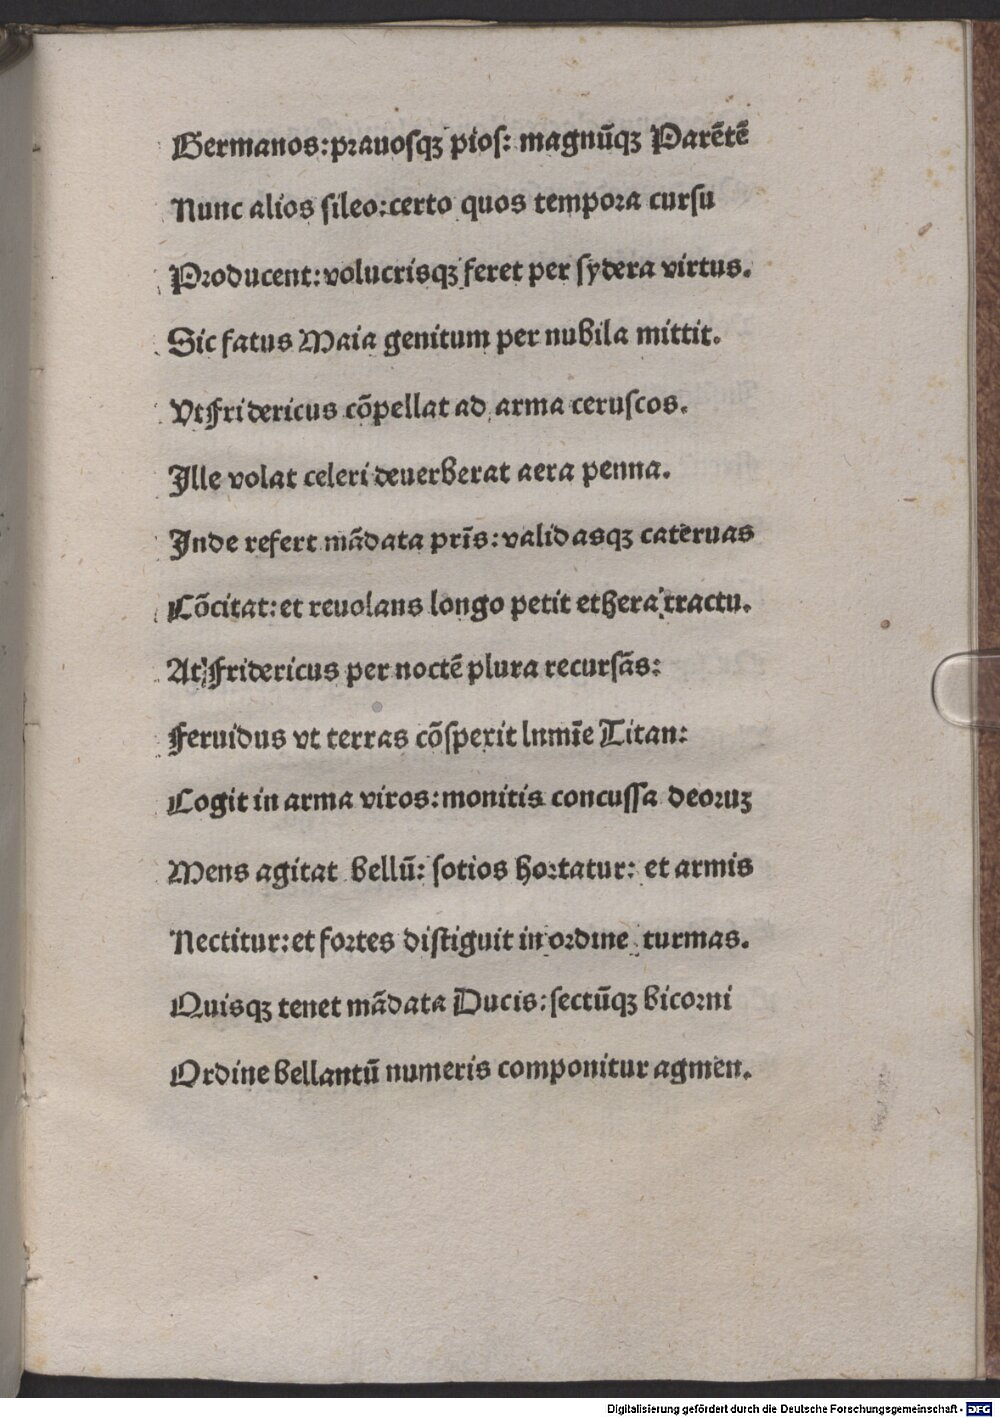 Germanos: prauosqꝫ pios: magnūqꝫ Parētē
Nunc alios sileo: certo quos tempora cursu
Producent: volucrisqꝫ feret per sydera virtus.
Sic fatus Maia genitum per nubila mittit.
Vt Fridericus cōpellat ad arma ceruscos.
Ille volat celeri deuerberat aera penna.
Inde refert mādata prīs: validasqꝫ cateruas
Cōcitat: et reuolans longo petit ethera tractu.
At Fridericus per noctē plura recursās:
Feruidus vt terras cōsperit lnmīe Titan:
Cogit in arma viros: monitis concussa deoruꝫ
Mens agitat bellū: sotios hortatur: et armis
Nectitur: et fortes distiguit in ordine turmas.
Quisqꝫ tenet mādata Ducis: sectūqꝫ bicorni
Ordine bellantū numeris componitur agmen.
Digitalisierung gefördert durch die Deutsche Forschungsgemeinschaft - DFG